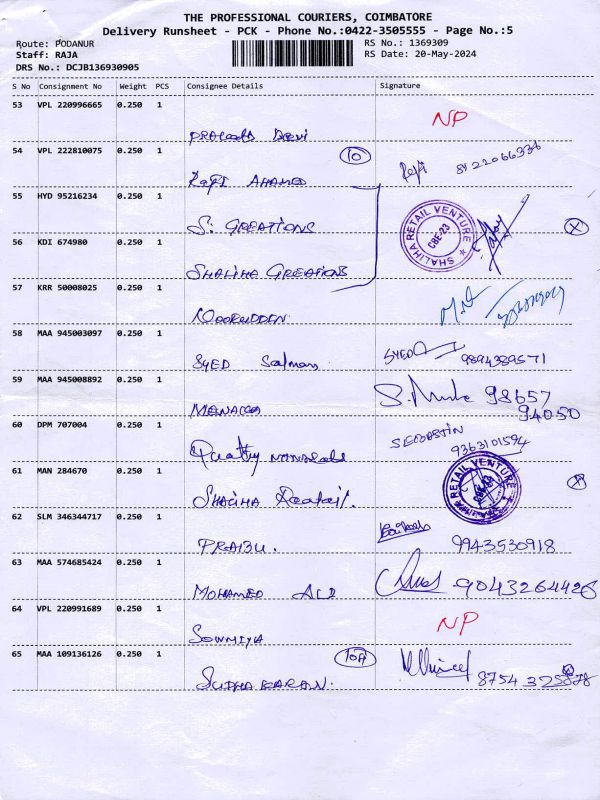 THE PROFESSIONAL COURIERS, COIMBATORE
Delivery Runsheet - PCK - Phone No.:0422-3505555 - Page No.:5
Route: PODANUR RS No.: 1369309
Staff: RAJA RS Date: 20-May-2024
DRS No.: DCJB136930905
S No Consignment No Weight PCS Consignee Details Signature
53 VPL 220996665 0.250 1
NP
54 VPL 222810075 0.250 1
10
RAFI AHAMED
55 HYD 95216234 0.250 1
S. CREATIONS
SHALIHA RETAIL VENTURE
CBE-23
X
56 KDI 674980 0.250 1
SHALIHA CREATIONS
57 KRR 50008025 0.250 1
NOORUDDEN
58 MAA 945003097 0.250 1
SYED Salman
SYED 9894389571
59 MAA 945008892 0.250 1
98657
94050
60 DPM 707004 0.250 1
Quality
SEBASTIN
9363101594
61 MAN 284670 0.250 1
SHALIHA
RETAIL VENTURE
62 SLM 346344717 0.250 1
PRABU.
9943530918
63 MAA 574685424 0.250 1
MOHAMED ALI
9043264426
64 VPL 220991689 0.250 1
SOWMIYA
NP
65 MAA 109136126 0.250 1
10A
SUDHAKARAN.
8754 325878